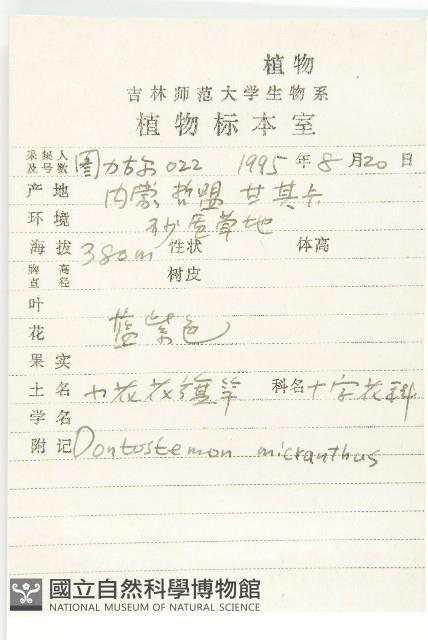 植物
吉林师范大学生物系
植物标本室
采集人及号数 图力古尔 022 1995年8月20日
产地 内蒙 哲盟 甘其卡
环境 砂质草地
海拔 380m 性状 体高
胸高直径 树皮
叶
花 蓝紫色
果实
土名 小花花旗竿 科名 十字花科
学名
附记 Dontostemon micranthus
國立自然科學博物館
NATIONAL MUSEUM OF NATURAL SCIENCE